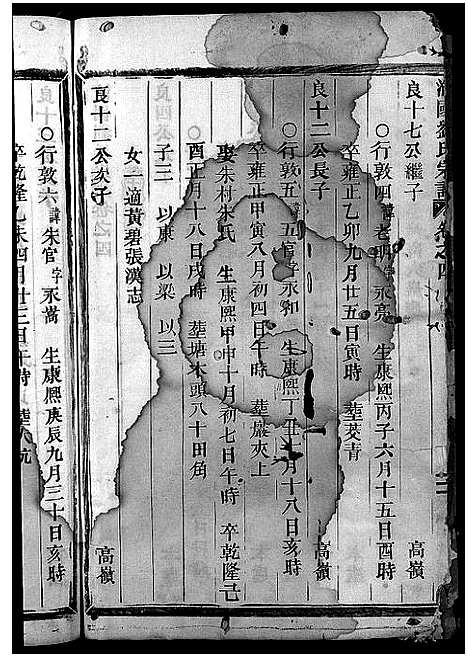 良十七公繼子
高嶺
○行敦四 諱老明 字永亮 生康熙丙子六月十五日酉時
卒雍正乙卯九月廿五日寅時 塟茭青
良十二公長子
高嶺
○行敦五 諱五官 字永和 生康熙丁丑 月十八日亥時
卒雍正甲寅八月初四日午時 塟嚴夾上
娶朱村朱氏 生康熙甲申十月初七日午時 卒乾隆己
酉正月十八日戌時 塟塘木頭八十田角
子三 以康 以梁 以三
女一適黃碧張漢志
良十二公次子
高嶺
○行敦六 諱朱官 字永嵩 生康熙庚辰九月三十日亥時
卒乾隆乙未四月廿三日午時 塟 坑